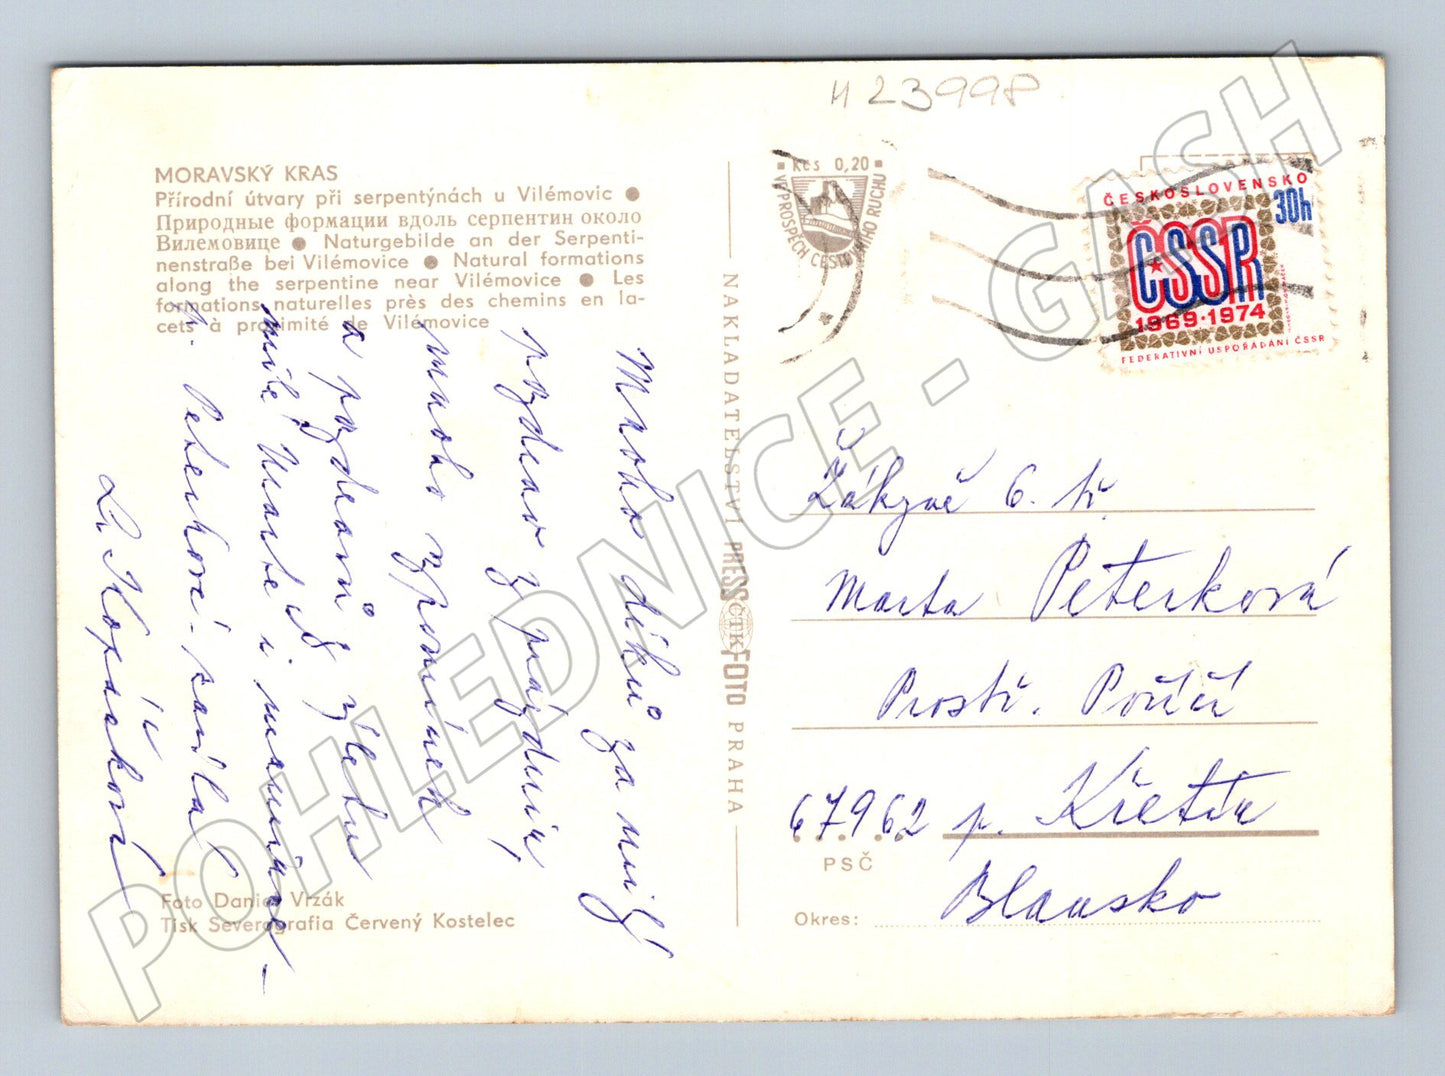 H 23998
MORAVSKÝ KRAS
Přírodní útvary při serpentýnách u Vilémovic ●
Природные формации вдоль серпентин около
Вилемовице ● Naturgebilde an der Serpenti-
nenstraße bei Vilémovice ● Natural formations
along the serpentine near Vilémovice ● Les
formations naturelles près des chemins en la-
cets à proximité de Vilémovice
Mnoho díků za milý
pozdrav z prázdnin,
mnoho vzpomínek
a pozdravů z léta
milé Martě i mamince
p. Peterkové. posílá
L. Kopáčková
Foto Daniel Vrzák
Tisk Severografia Červený Kostelec
NAKLADATELSTVÍ PRESSFOTO PRAHA
ČTK
Kčs 0,20
VE PROSPĚCH CESTOVNÍHO RUCHU
ČESKOSLOVENSKO
30h
ČSSR
1969·1974
FEDERATIVNÍ USPOŘÁDÁNÍ ČSSR
Žákyně 6. tř.
Marta Peterková
Prostř. Poříčí
67962 p. Křetín
PSČ
Okres: Blansko
POHLEDNICE - GASH